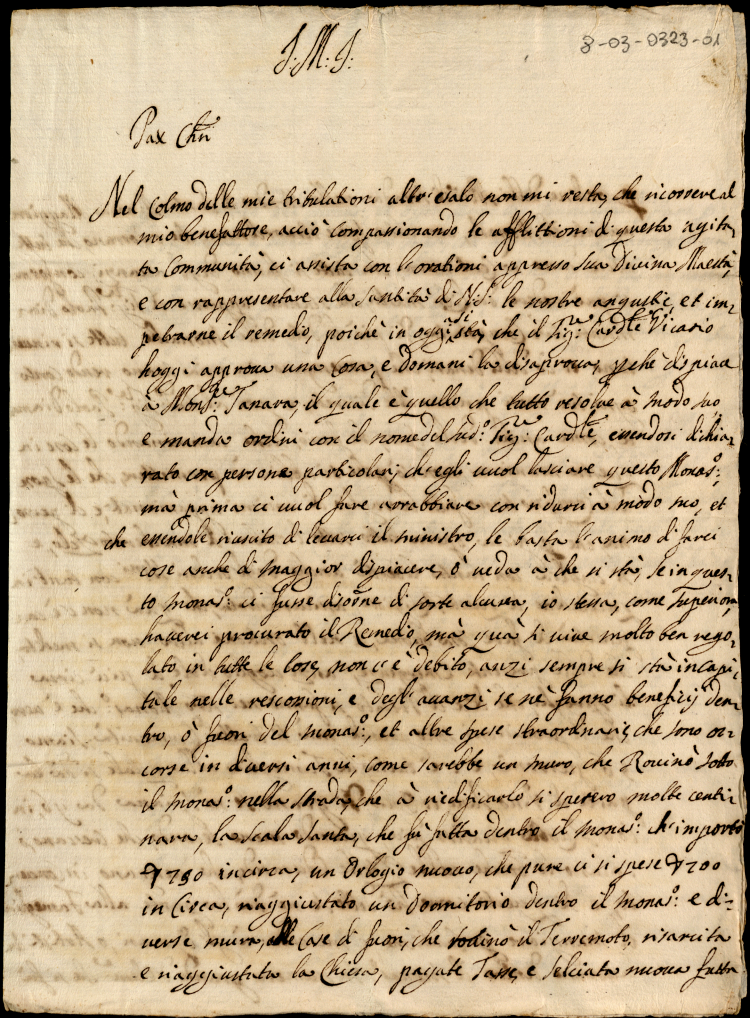 J: M: J:
8-03-0323-01
Pax Chri
Nel Colmo delle mie tribulationi altr'esalo non mi resta, che ricorrere al
mio benefattore, acciò compassionando le afflittioni di questa agita,
ta Communità, ci assista con l'orationi appresso sua Divina Maestà,
e con rappresentare alla Santità di N: S: le nostre angustie, et im,
petrarne il remedio, poiche in oggi si stà, che il Sig:r Cardle Vicario
hoggi approva una Cosa, e domani la disaprova, pche dispiace
à Monsre Tanara, il quale è quello che tutto resolve à modo suo,
e manda ordini con il nome del sudo: Sig:r Cardle, essendosi dichia,
rato con persone particolari, ch'egli vuol lasciare questo Monaso:,
mà prima ci vuol fare arrabbiare con ridurci à modo suo, et
che essendole riuscito di levarci il ministro, le basta l'animo di farci
cose anche di maggior dispiacere, ò veda à che si stà, se in ques,
to monaso: ci fusse disorne di sorte alcuna, io stessa, come Superiora,
haverei procurato il Remedio, mà quà si vive molto ben rego,
lato in tutte le Cose, non c'è debito, anzi sempre si stà in capi,
tale nelle rescossioni, e degl'avanzi se nè fanno beneficij den,
tro, ò fuori del monaso:, et altre spese straordinarie, che sono oc,
corse in diversi anni, come sarebbe un muro, che Rovinò sotto
il monaso: nella strada, che à riedificarlo si spesero molte centi,
nara, la Scala Santa, che fù fatta dentro il monaso: ch'importò
750 incirca, un Orlogio nuovo, che pure ci si spese 200
in Circa, riaggiustato un Dormitorio dentro il monaso: e di,
verse mura, alle Case di fuori, che rodinò il Terremoto, risarcita
e riaggiustata la Chiesa, pagate Tasse, e selciata nuova fatta